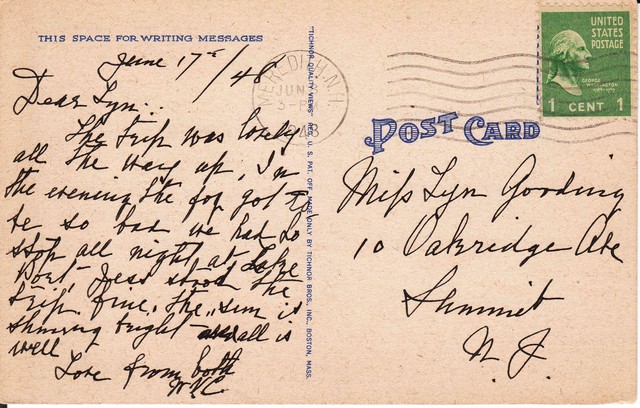 THIS SPACE FOR WRITING MESSAGES
June 17th/48
Dear Lyn..
The trip was lovely
all the way up, In
the evening the fog got to
be so bad we had to
stop all night at Lake
Port, Jess stood the
trip fine. The sun is
shining bright and all is
well
Love from both
W.V.C.
"TICHNOR QUALITY VIEWS" REG. U. S. PAT. OFF. MADE ONLY BY TICHNOR BROS., INC., BOSTON, MASS.
MEREDITH N.H.
JUN
3-P
48
UNITED
STATES
POSTAGE
GEORGE
WASHINGTON
1789-1797
1 CENT 1
POST CARD
Miss Lyn Gooding
10 Oakridge Ave
Summit
N. J.